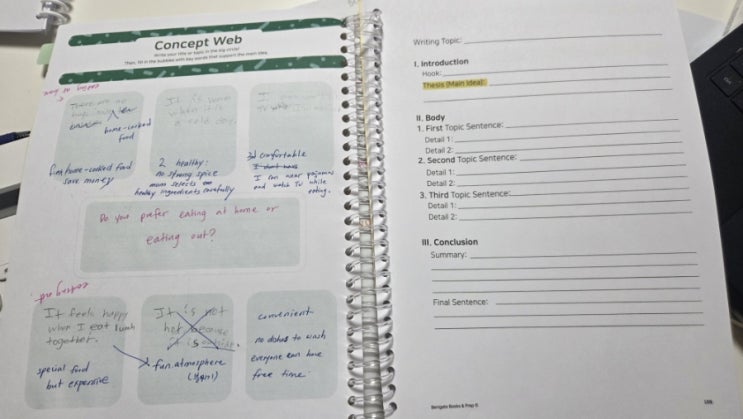 Concept Web
Write your title or topic in the big circle!
Then, fill in the bubbles with key words that support the main idea.
eating at home
There are no
home-cooked
food
home-cooked food
save money
It is
when
a cold day.
2 healthy:
no strong spice
mom selects
healthy ingredients carefully
3 comfortable
I can wear pajamas
and watch TV while
eating.
Do you prefer eating at home or
eating out?
eating out
It feels happy
when I eat lunch
together.
special food
but expensive
It is not
hot because
it is outside.
fun atmosphere
convenient
no dishes to wash
everyone can have
free time.
Writing Topic:
I. Introduction
Hook:
Thesis (Main Idea):
II. Body
1. First Topic Sentence:
Detail 1:
Detail 2:
2. Second Topic Sentence:
Detail 1:
Detail 2:
3. Third Topic Sentence:
Detail 1:
Detail 2:
III. Conclusion
Summary:
Final Sentence: